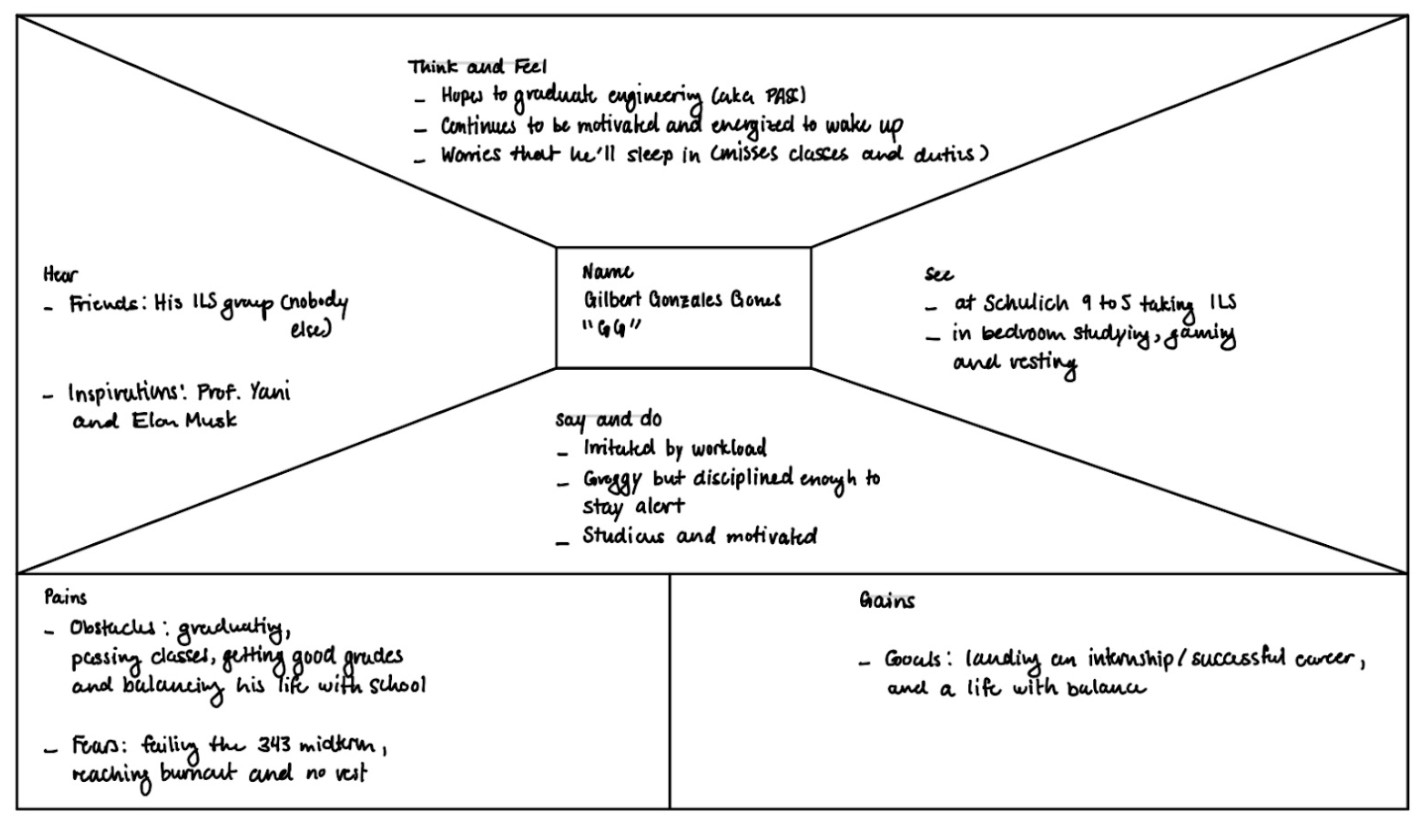 Think and Feel
- Hopes to graduate engineering (aka PASS)
- Continues to be motivated and energized to wake up
- Worries that he'll sleep in (misses classes and duties)
Hear
- Friends: His ILS group (nobody
else)
- Inspirations: Prof. Yani
and Elon Musk
Name
Gilbert Gonzales Gones
"GG"
See
- at Schulich 9 to 5 taking ILS
- in bedroom studying, gaming
and resting
Say and do
- Irritated by workload
- Groggy but disciplined enough to
stay alert
- Studious and motivated
Pains
- Obstacles: graduating,
passing classes, getting good grades
and balancing his life with school
- Fears: failing the 343 midterm,
reaching burnout and no rest
Gains
- Goals: landing an internship/successful career,
and a life with balance